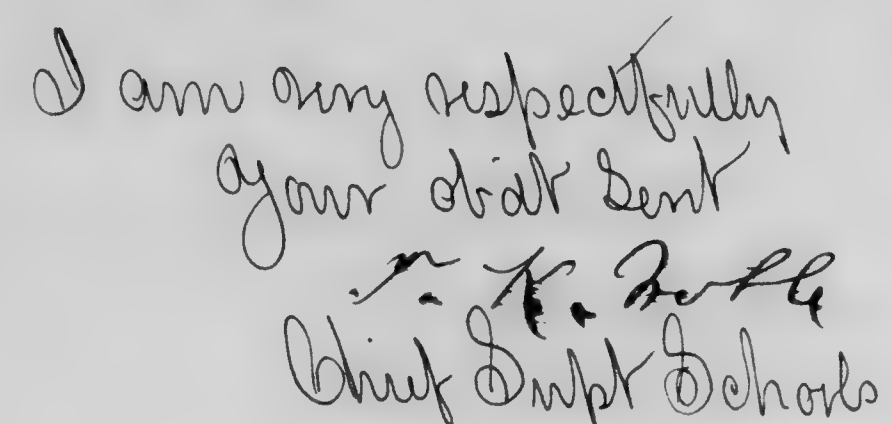 I am very respectfully
your obdt Servt
T. K. Noble
Chief Supt Schools